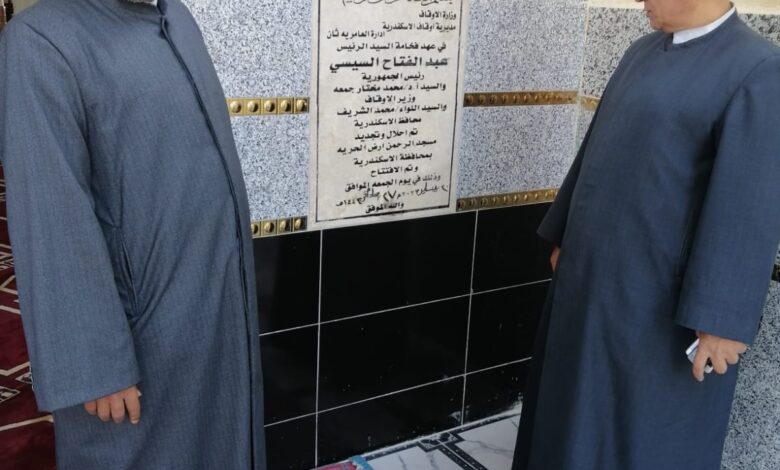 وزارة الاوقاف
مديرية أوقاف الاسكندرية
ادارة العامرية ثان
في عهد فخامة السيد الرئيس
عبد الفتاح السيسي
رئيس الجمهورية
والسيد أ.د/محمد مختار جمعه
وزير الاوقاف
والسيد اللواء/محمد الشريف
محافظ الاسكندرية
تم احلال وتجديد
مسجد الرحمن ارض الحريه
بمحافظة الاسكندرية
وتم الافتتاح
وذلك في يوم الجمعه الموافق
والله الموفق